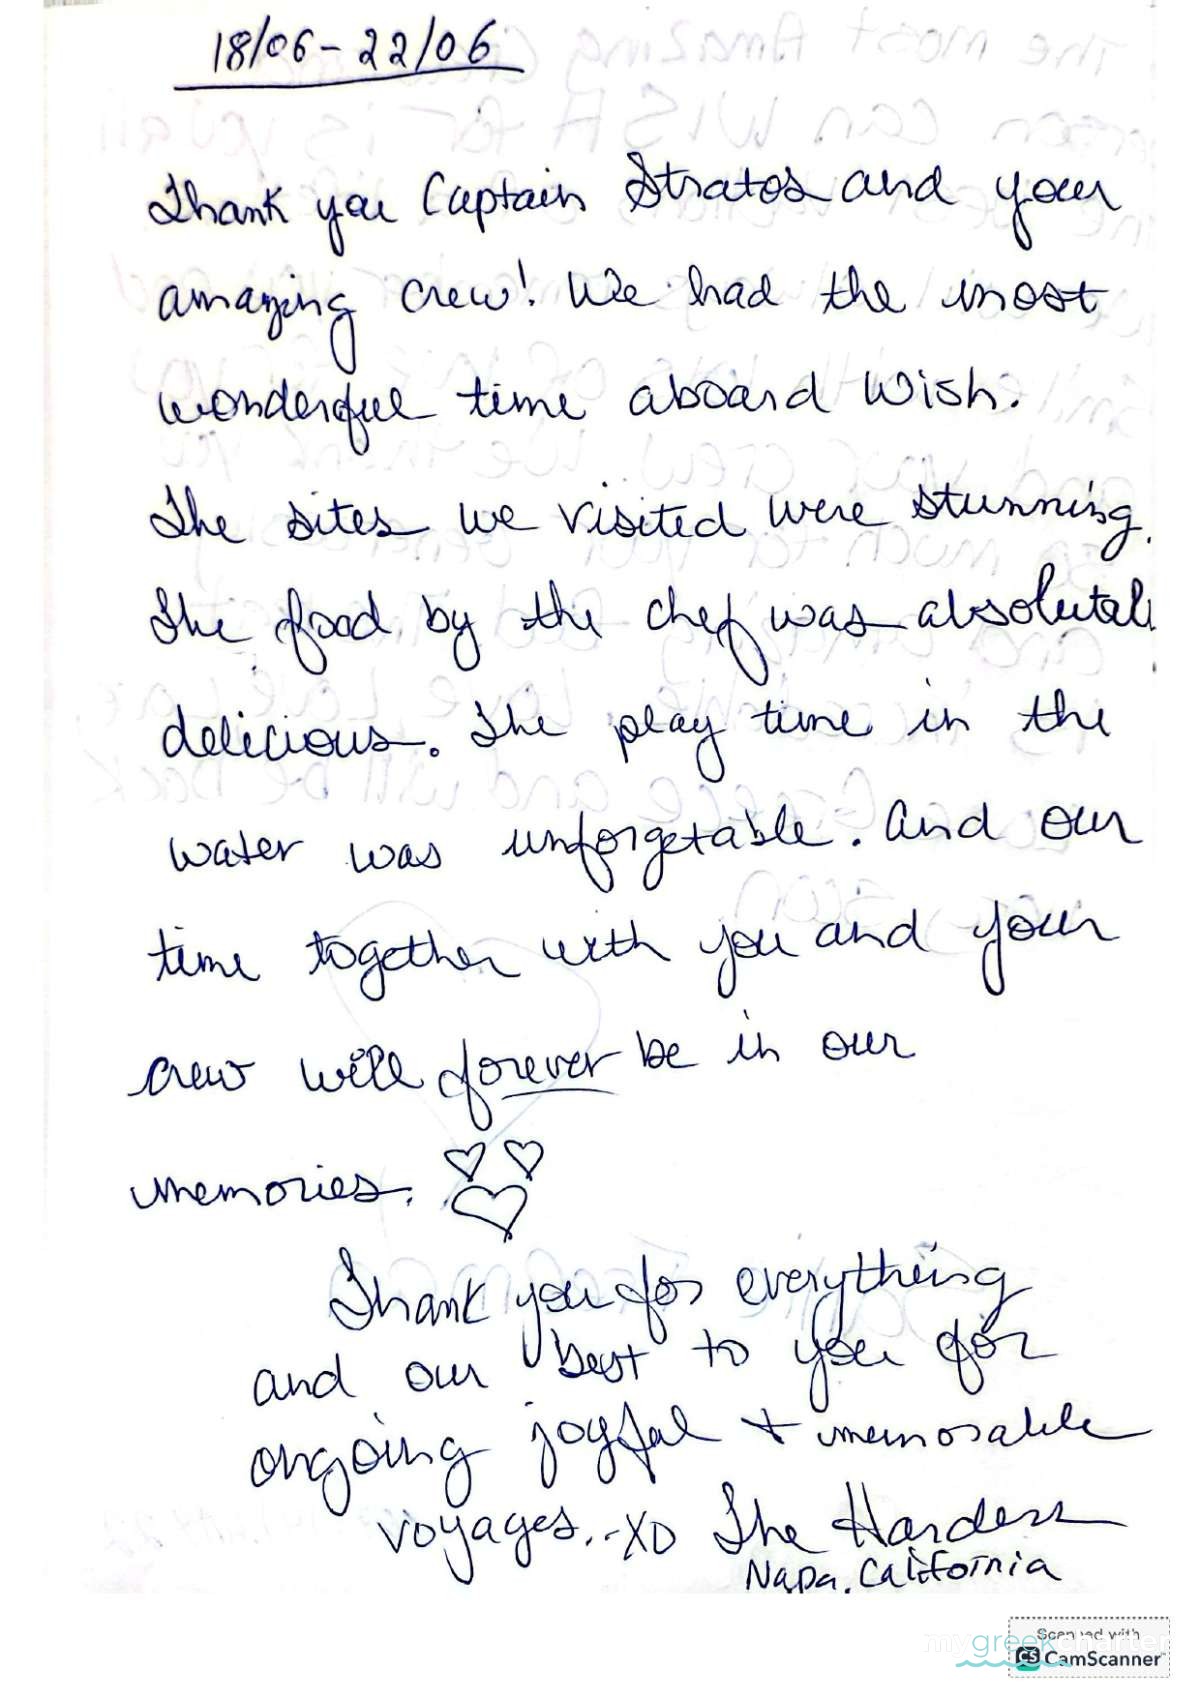 18/06-22/06
Thank you Captain Stratos and your
amazing crew! We had the most
wonderful time aboard Wish.
The sites we visited were stunning.
The food by the chef was absolutel
delicious. The play time in the
water was unforgetable. And our
time together with you and your
crew will forever be in our
memories.
Thank you for everything
and our best to you for
ongoing joyful + memorable
voyages. -XO The
Napa, California
Scanned with
mygreekcharter
CS CamScanner